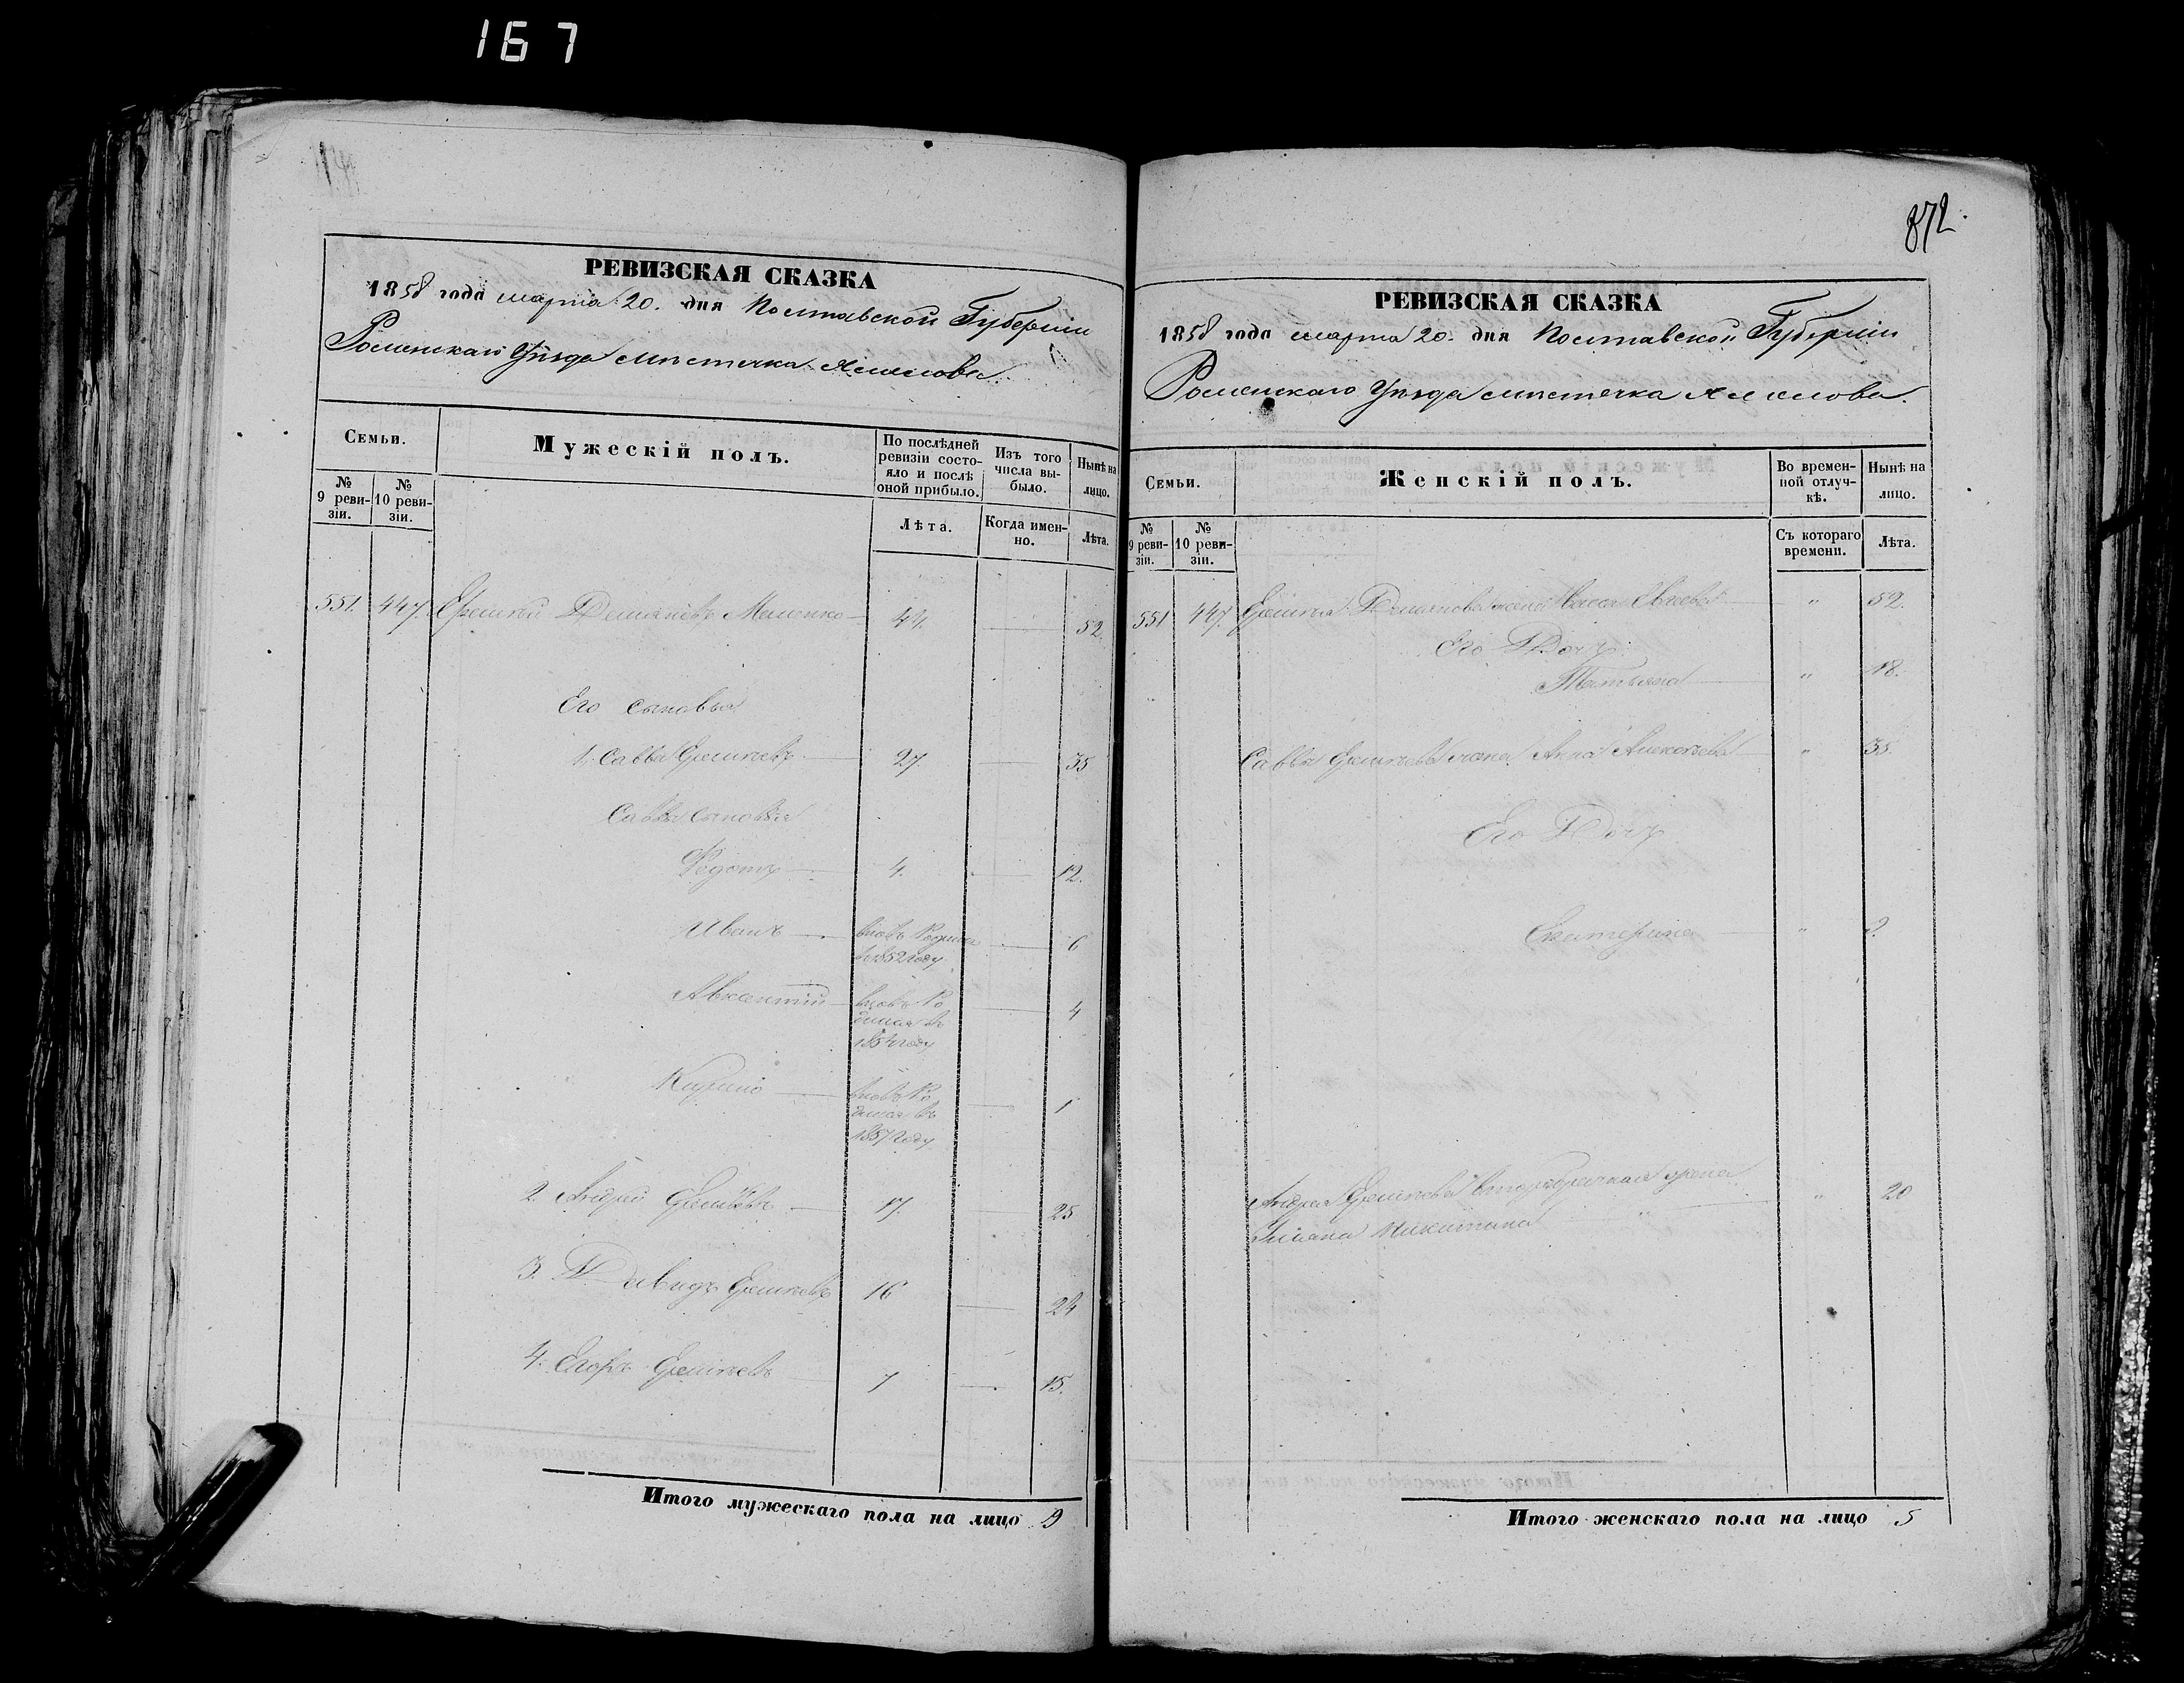 167
РЕВИЗСКАЯ СКАЗКА
1858 года марта 20. дня Полтавской Губернiи
Роменскаго Уѣзда мѣстечка
Семьи.
Мужескiй полъ.
По послѣдней ревизiи состояло и послѣ оной прибыло.
Изъ того числа выбыло.
Нынѣ на лицо.
№ 9 ревизiи.
№ 10 ревизiи.
Лѣта.
Когда именно.
Лѣта.
551. 447. Еремѣй Демьяновъ 44. 52.
Его сыновья
1. Савва Еремѣевъ 27. 35
Саввы сыновья
Федотъ 4. 12.
Иванъ вновь Родился в 1852 году 6
Авксентiй вновь Родился въ 1854 году 4
Кирило вновь Родился въ 1857 году 1
2. Андрей Еремѣевъ 17. 25
3. Давидъ Еремѣевъ 16 24
4. Егоръ Еремѣевъ 7 15.
Итого мужескаго пола на лицо 9
872
РЕВИЗСКАЯ СКАЗКА
1858 года марта 20. дня Полтавской Губернiи
Роменскаго Уѣзда мѣстечка
Семьи.
Женскiй полъ.
Во временной отлучкѣ.
Нынѣ на лицо.
№ 9 ревизiи.
№ 10 ревизiи.
Съ котораго времени.
Лѣта.
551 447. Еремѣя Демьянова жена " 52.
Его Дочь
Татьяна " 18.
Саввы Еремѣева жена Анна " 35.
Его Дочь
Екатерина " 2.
Андрея Еремѣева второбрачная жена " 20
Никитина "
Итого женскаго пола на лицо 5